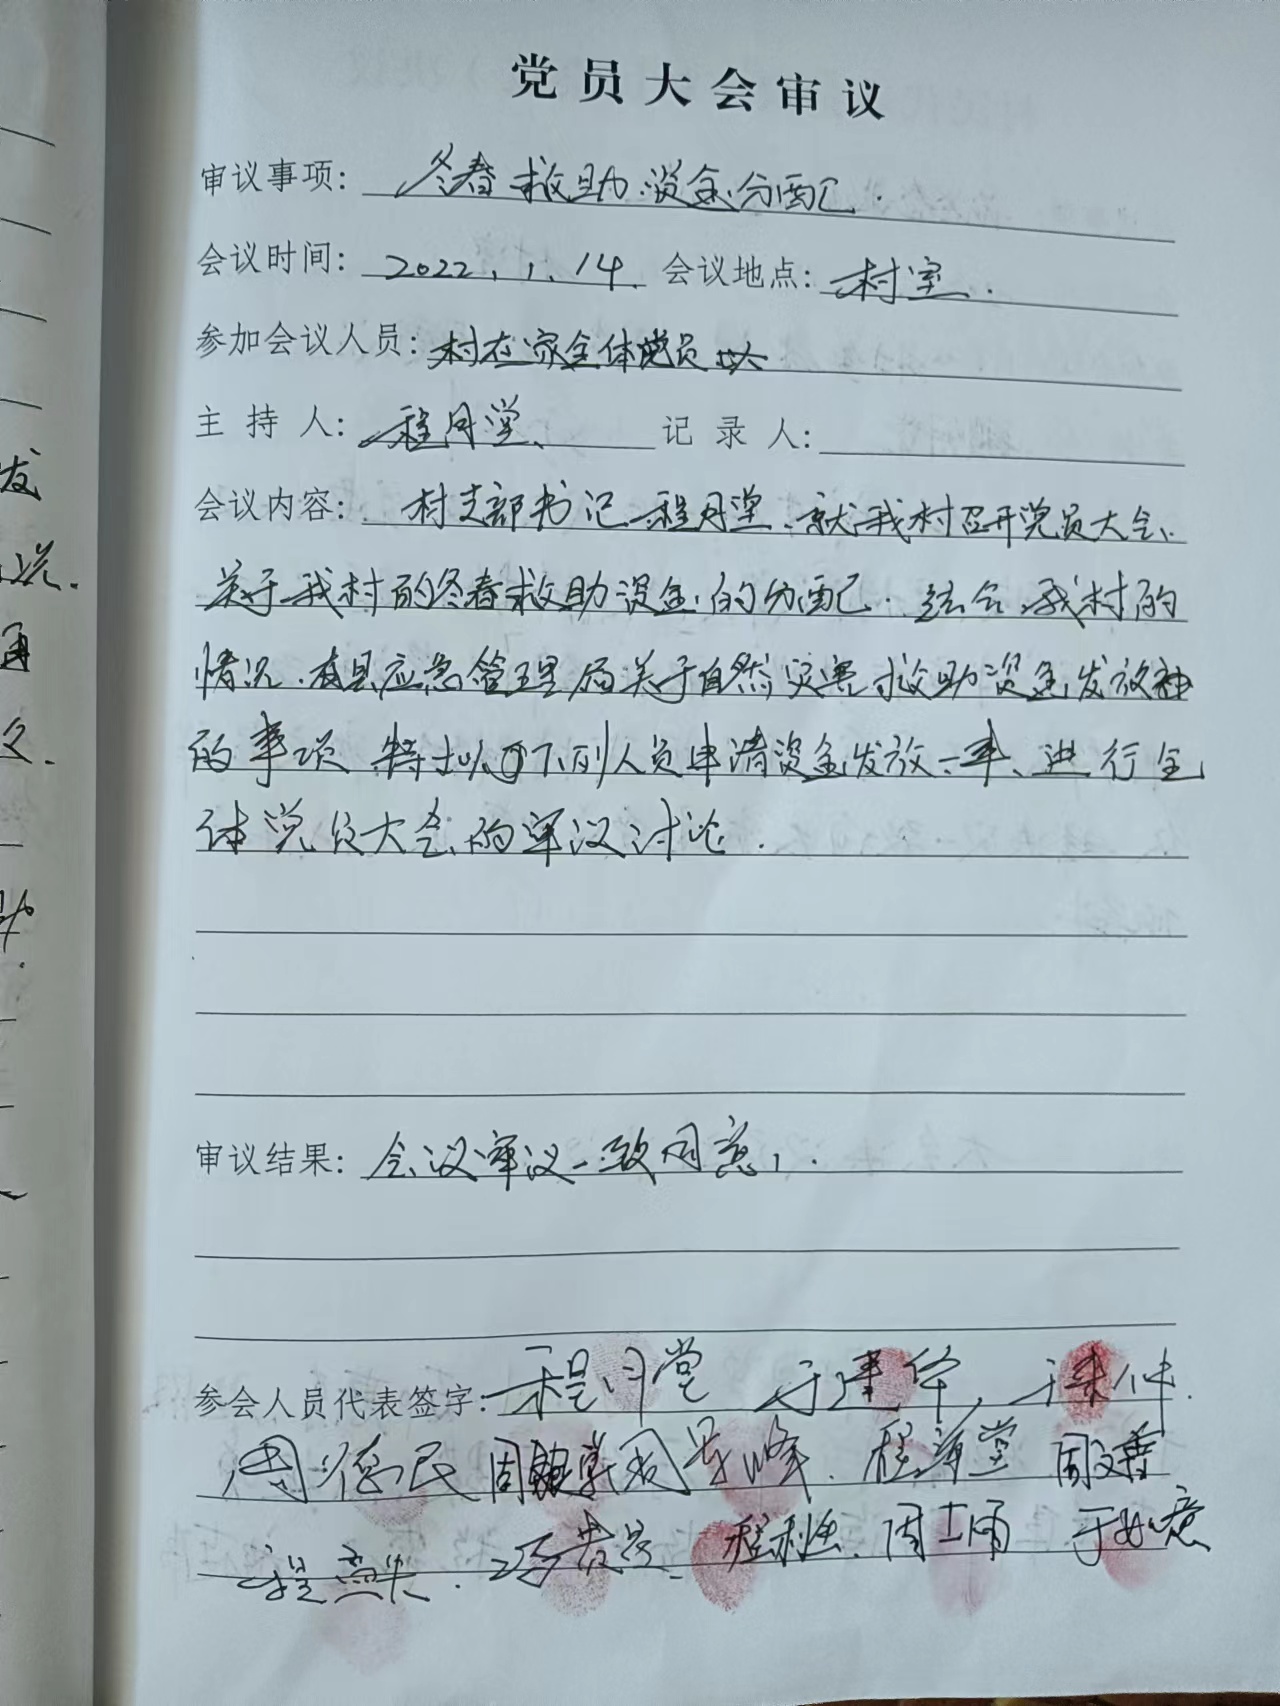 党员大会审议
审议事项：冬春救助资金分配.
会议时间：2022.1.14. 会议地点：村室.
参加会议人员：村在家全体党员
主持人：程月堂、 记录人：
会议内容：村支部书记程月堂、就我村召开党员大会、
关于我村的冬春救助资金的分配. 结合我村的
情况. 有县应急管理局关于自然灾害救助资金发放
的事项 特拟以下列人员申请资金发放一事、进行全
体党员大会的审议讨论.
审议结果：会议审议一致同意,.
参会人员代表签字：程月堂 于建华,
周德民 程海堂 周文
程 程利 周士 于如意
发
况.
再